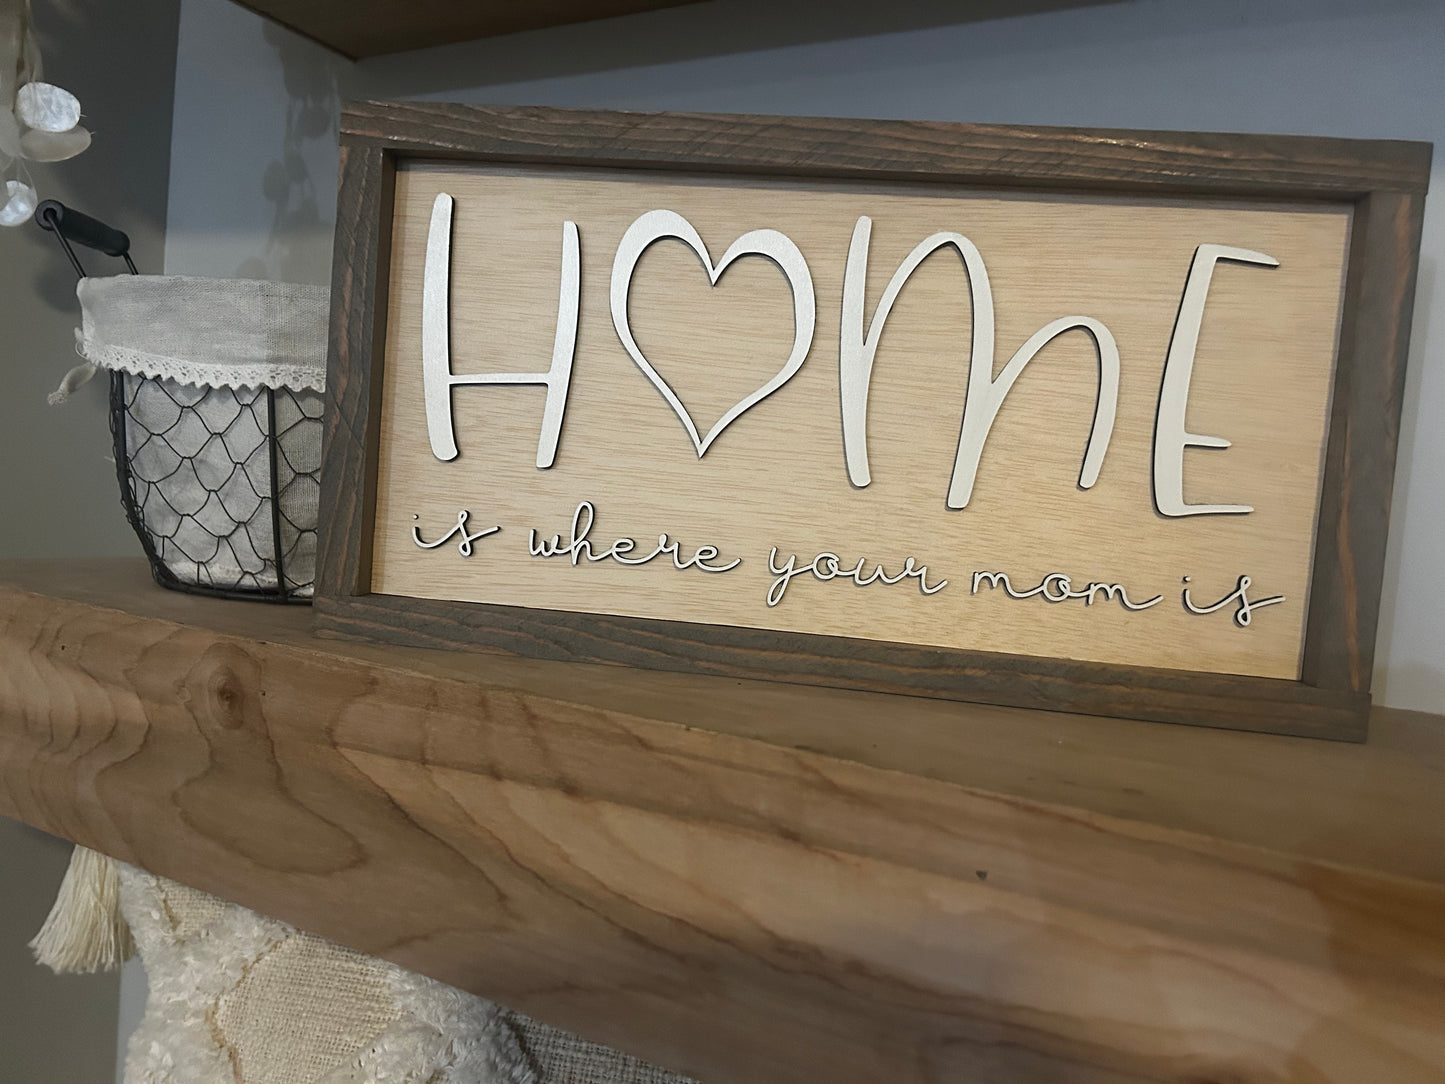 HOME
is where your mom is